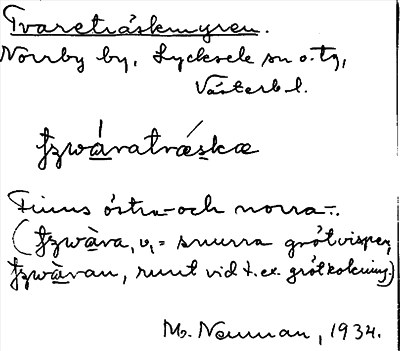 Tvareträskmyren.
Norrby by, Lycksele sn o. tg,
Västerb l.
tzwàratrǽskæ
Finns östra- och norra-.
(tzwàra, v, = snurra grötvispen,
tzwàran, runt vid t. ex. grötkokning.)
M. Neuman, 1934.